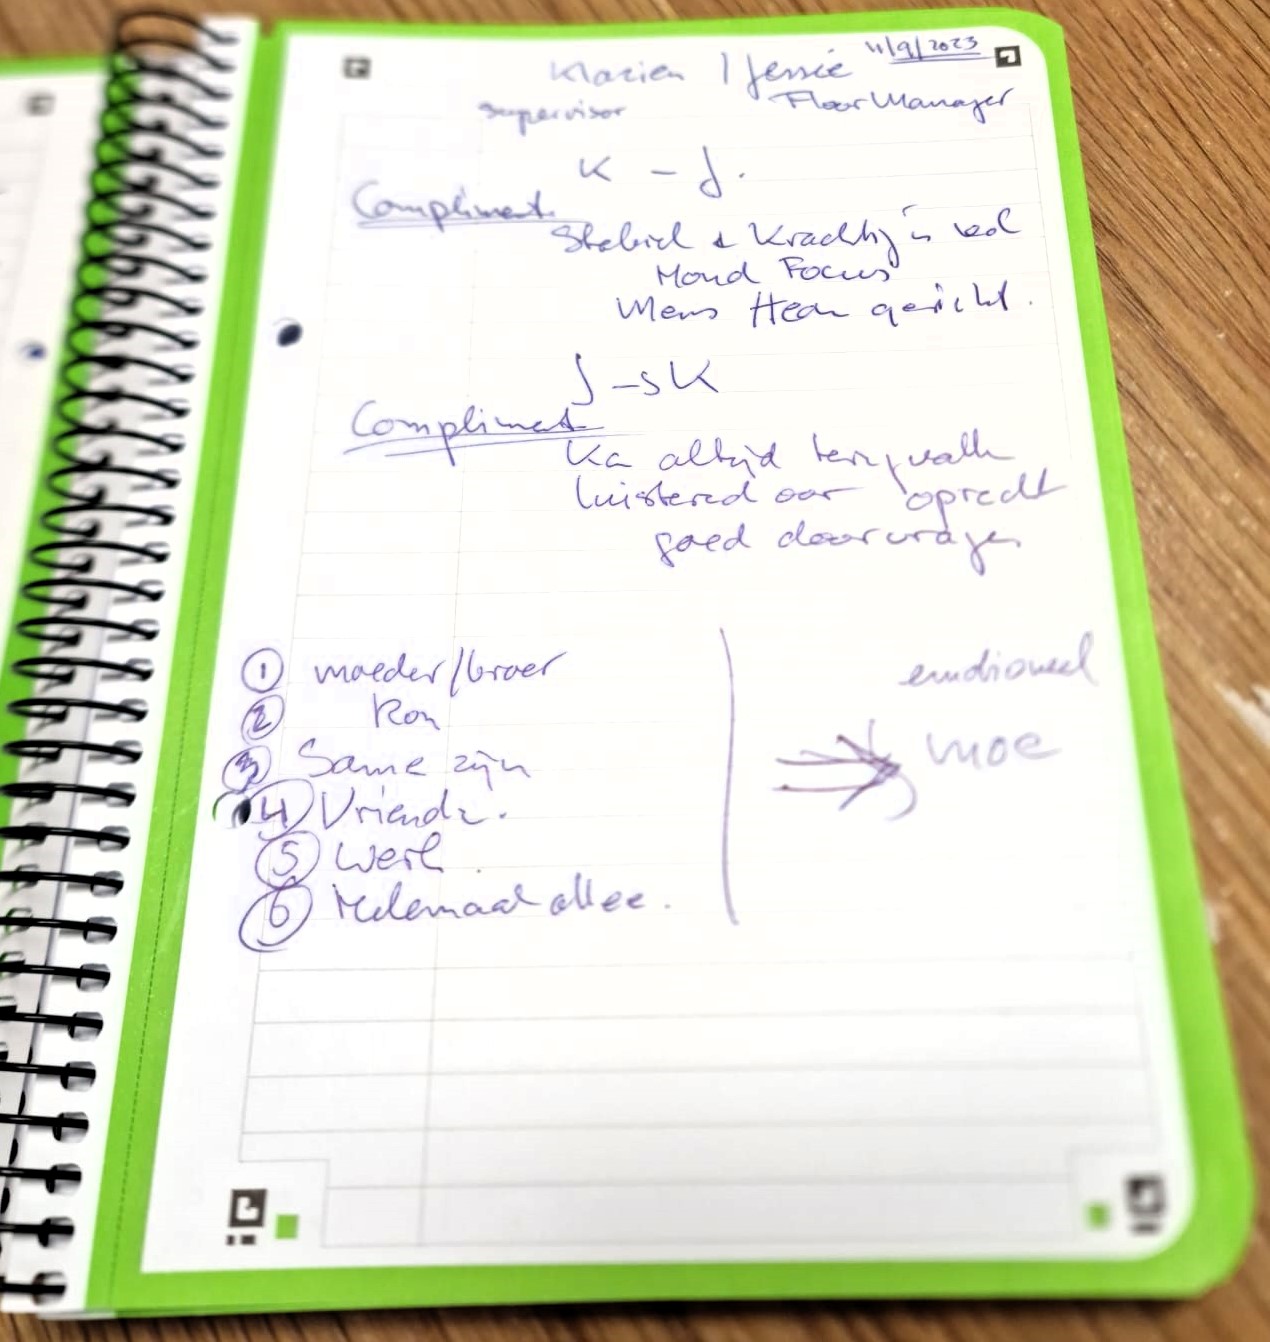 11/9/2023
Klazien / Jessie
supervisor Floor Manager
K - J.
Compliment
Stabiel & Krachtig in
Mond Focus
Mens gericht.
J -> K
Compliment
Ka altijd terugvalle
luistered oor oprecht
goed doorvrage
1 moeder/broer
2 Ron
3 Same zijn
4 Vriende.
5 werk
6 Helemaal allee.
emotioneel
moe